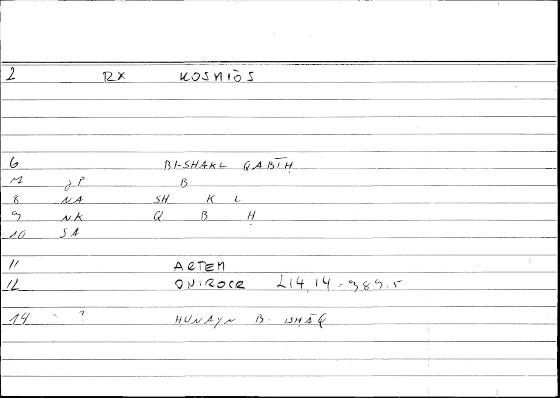 2 RX KOSMIŌS
6 BI-SHAKL QABĪḤ
7 JP B
8 NA SH K L
9 NK Q B Ḥ
10 SA
11 ARTEM
12 ONIROCR 214,14 = 389.5
14 ? ḤUNAYN B. ISḤĀQ